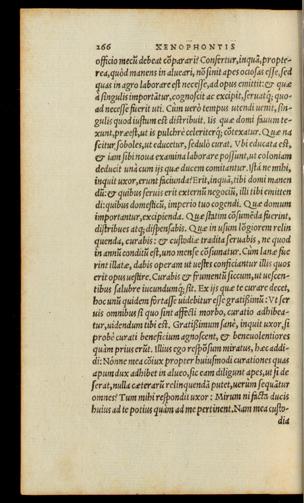 266 XENOPHONTIS
officio mecũ debeat cõparari? Confertur, inquã, propte-
rea, quòd manens in alueari, nõ sinit apes ociosas esse, sed
quas in agro laborare est necesse, ad opus emittit: & quæ
à singulis importãtur, cognoscit ac excipit, seruatq́; quo-
ad necesse fuerit uti. Cum uerò tempus utendi uenit, sin-
gulis quod iustum est distribuit. Iis quæ domi fauum te-
xunt, præest, ut is pulchrè celeriterq́; cõtexatur. Quæ na
scitur soboles, ut educetur, sedulò curat. Vbi educata est,
& iam sibi noua examina laborare possunt, ut coloniam
deducit unà cum ijs quæ ducem comitantur. Istã ne mihi,
inquit uxor, erunt faciunda? Erit, inquã, tibi domi manen
dũ: & quibus seruis erit externũ negociũ, illi tibi emitten
di: quibus domesticũ, imperio tuo cogendi. Quæ domum
importantur, excipienda. Quæ statim cõsumẽda fuerint,
distribues atq; dispensabis. Quæ in usum lõgiorem relin
quenda, curabis: & custodiæ tradita seruabis, ne quod
in annũ conditũ est, uno mense cõsumatur. Cum lanæ fue
rint illatæ, dabis operam ut uestes conficiantur illis quos
erit opus uestire. Curabis & frumentũ siccum, ut uescen-
tibus salubre iucundumq́; sit. Ex ijs quæ te curare decet,
hoc unũ quidem fortasse uidebitur esse gratissimũ: Vt ser
uis omnibus si quo sint affecti morbo, curatio adhibea-
tur, uidendum tibi est. Gratissimum sanè, inquit uxor, si
probè curati beneficium agnoscent, & beneuolentiores
quàm prius erũt. Illius ego respõsum miratus, hæc addi-
di: Nónne mea cõiux propter huiusmodi curationes quas
apum dux adhibet in alueo, sic eam diligunt apes, ut si de
serat, nulla cæterarũ relinquendã putet, uerùm sequãtur
omnes? Tum mihi respondit uxor: Mirum ni facta ducis
huius ad te potius quàm ad me pertinent. Nam mea custo-
dia